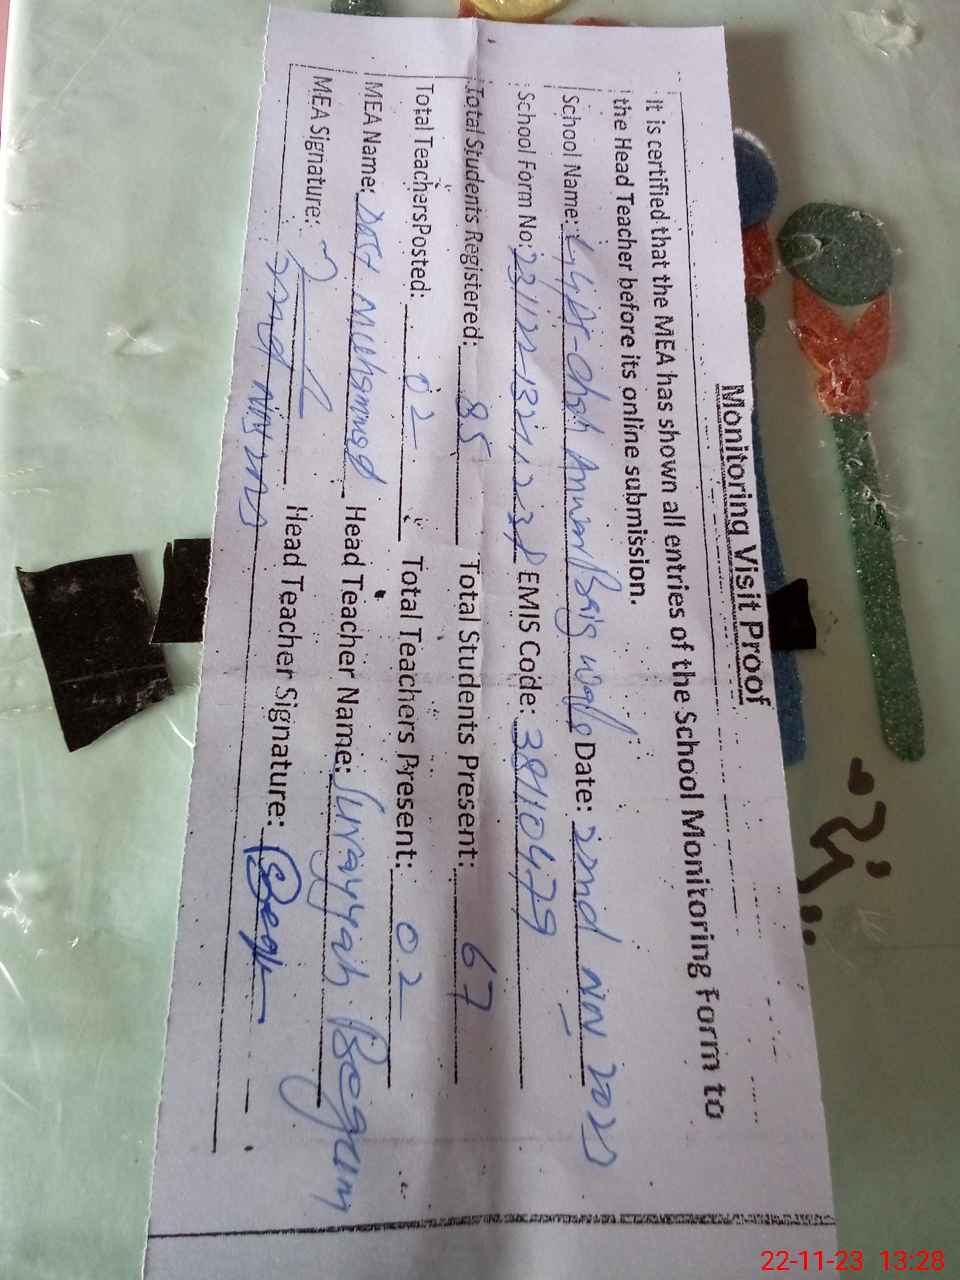 Monitoring Visit Proof
It is certified that the MEA has shown all entries of the School Monitoring Form to
the Head Teacher before its online submission.
School Name: Anwar Baig wala Date: 22nd Nov 2023
School Form No: EMIS Code: 38110479
Total Students Registered: 85 Total Students Present: 67
Total Teachers Posted: 02 Total Teachers Present: 02
MEA Name: Dost Muhammad Head Teacher Name: Surayyah Begum
MEA Signature: Head Teacher Signature:
22nd Nov 2023
22-11-23 13:28